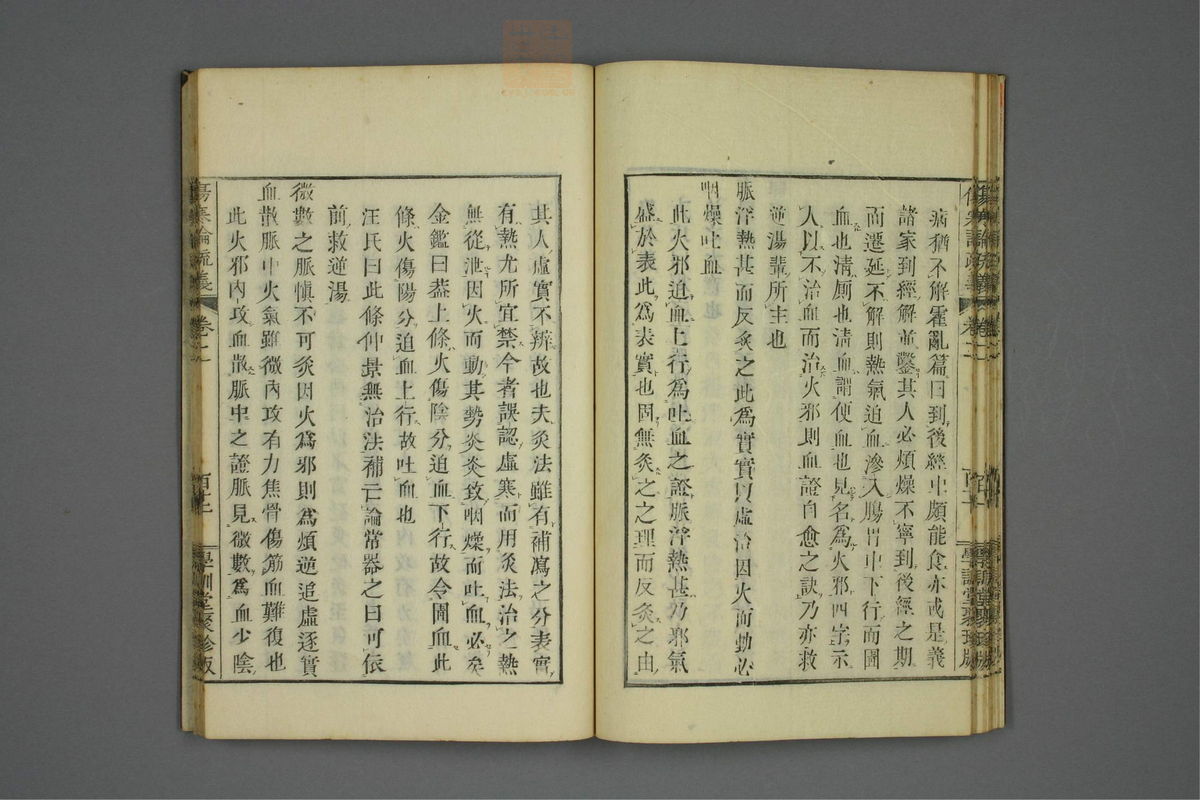 病猶不解霍亂篇曰到後經中頗能食亦或是義
諸家到經解並鑿其人必煩燥不寧到後經之期
而遷延不解則熱氣迫血滲入腸胃中下行而圊
血也清厠也清血謂便血也見名爲火邪四字示
人以不治血而治火邪則血證自愈之訣乃亦救
逆湯輩所主也
脈浮熱甚而反灸之此爲實實以虛治因火而動必
咽燥吐血
此火邪迫血上行爲吐血之證脈浮熱甚乃邪氣
盛於表此爲表實也固無灸之之理而反灸之由
其人虛實不辨故也夫灸法雖有補瀉之分表實
有熱尤所宜禁今者誤認虛寒而用灸法治之熱
無從泄因火而動其勢炎炎致咽燥而吐血必矣
金鑑曰蓋上條火傷陰分迫血下行故令圊血此
條火傷陽分迫血上行故吐血也
汪氏曰此條仲景無治法補亡論常器之曰可依
前救逆湯
微數之脈愼不可灸因火爲邪則爲煩逆追虛逐實
血散脈中火氣雖微內攻有力焦骨傷筋血難復也
此火邪內攻血散脈中之證脈見微數爲血少陰
傷寒論疏義
卷二
學訓堂聚珍版